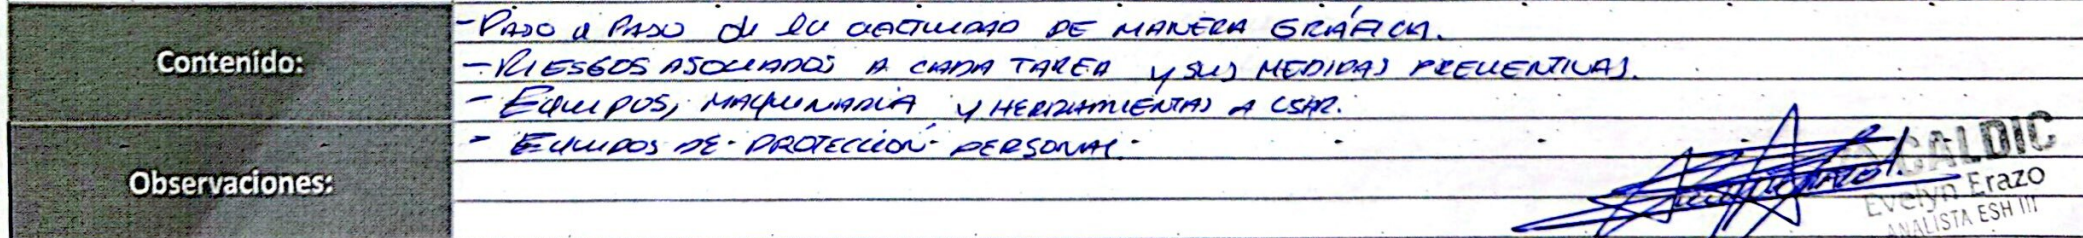 Contenido:
- PASO A PASO de la ACTIVIDAD DE MANERA GRÁFICA.
- RIESGOS ASOCIADOS A CADA TAREA y SUS MEDIDAS PREVENTIVAS.
- EQUIPOS, MAQUINARIA y HERRAMIENTAS A USAR.
- EQUIPOS DE PROTECCIÓN PERSONAL.
Observaciones:
CALDIC
Evelyn Erazo
ANALISTA ESH III